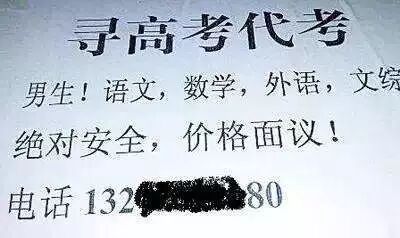 寻高考代考
男生！语文，数学，外语，文综
绝对安全，价格面议！
电话 132 80